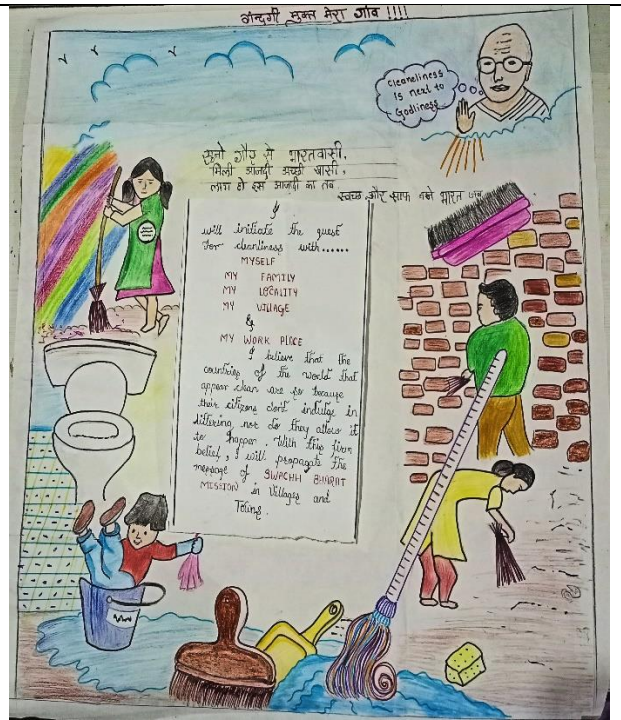 गन्दगी मुक्त मेरा गांव !!!!
Cleaneliness
is next to
Godliness
सुनो गौर से भारतवासी,
मिली आजादी अच्छी खासी,
इस आजादी का तब
स्वच्छ और साफ बने भारत जब
I
will initiate the quest
for cleanliness with......
MYSELF
MY FAMILY
MY LOCALITY
MY VILLAGE
&
MY WORK PLACE
I believe that the
countries of the world that
appear clean are so because
their citizens don't indulge in
littering nor do they allow it
to happen. With this firm
belief, I will propagate the
message of SWACHH BHARAT
MISSION in Villages and
Towns.